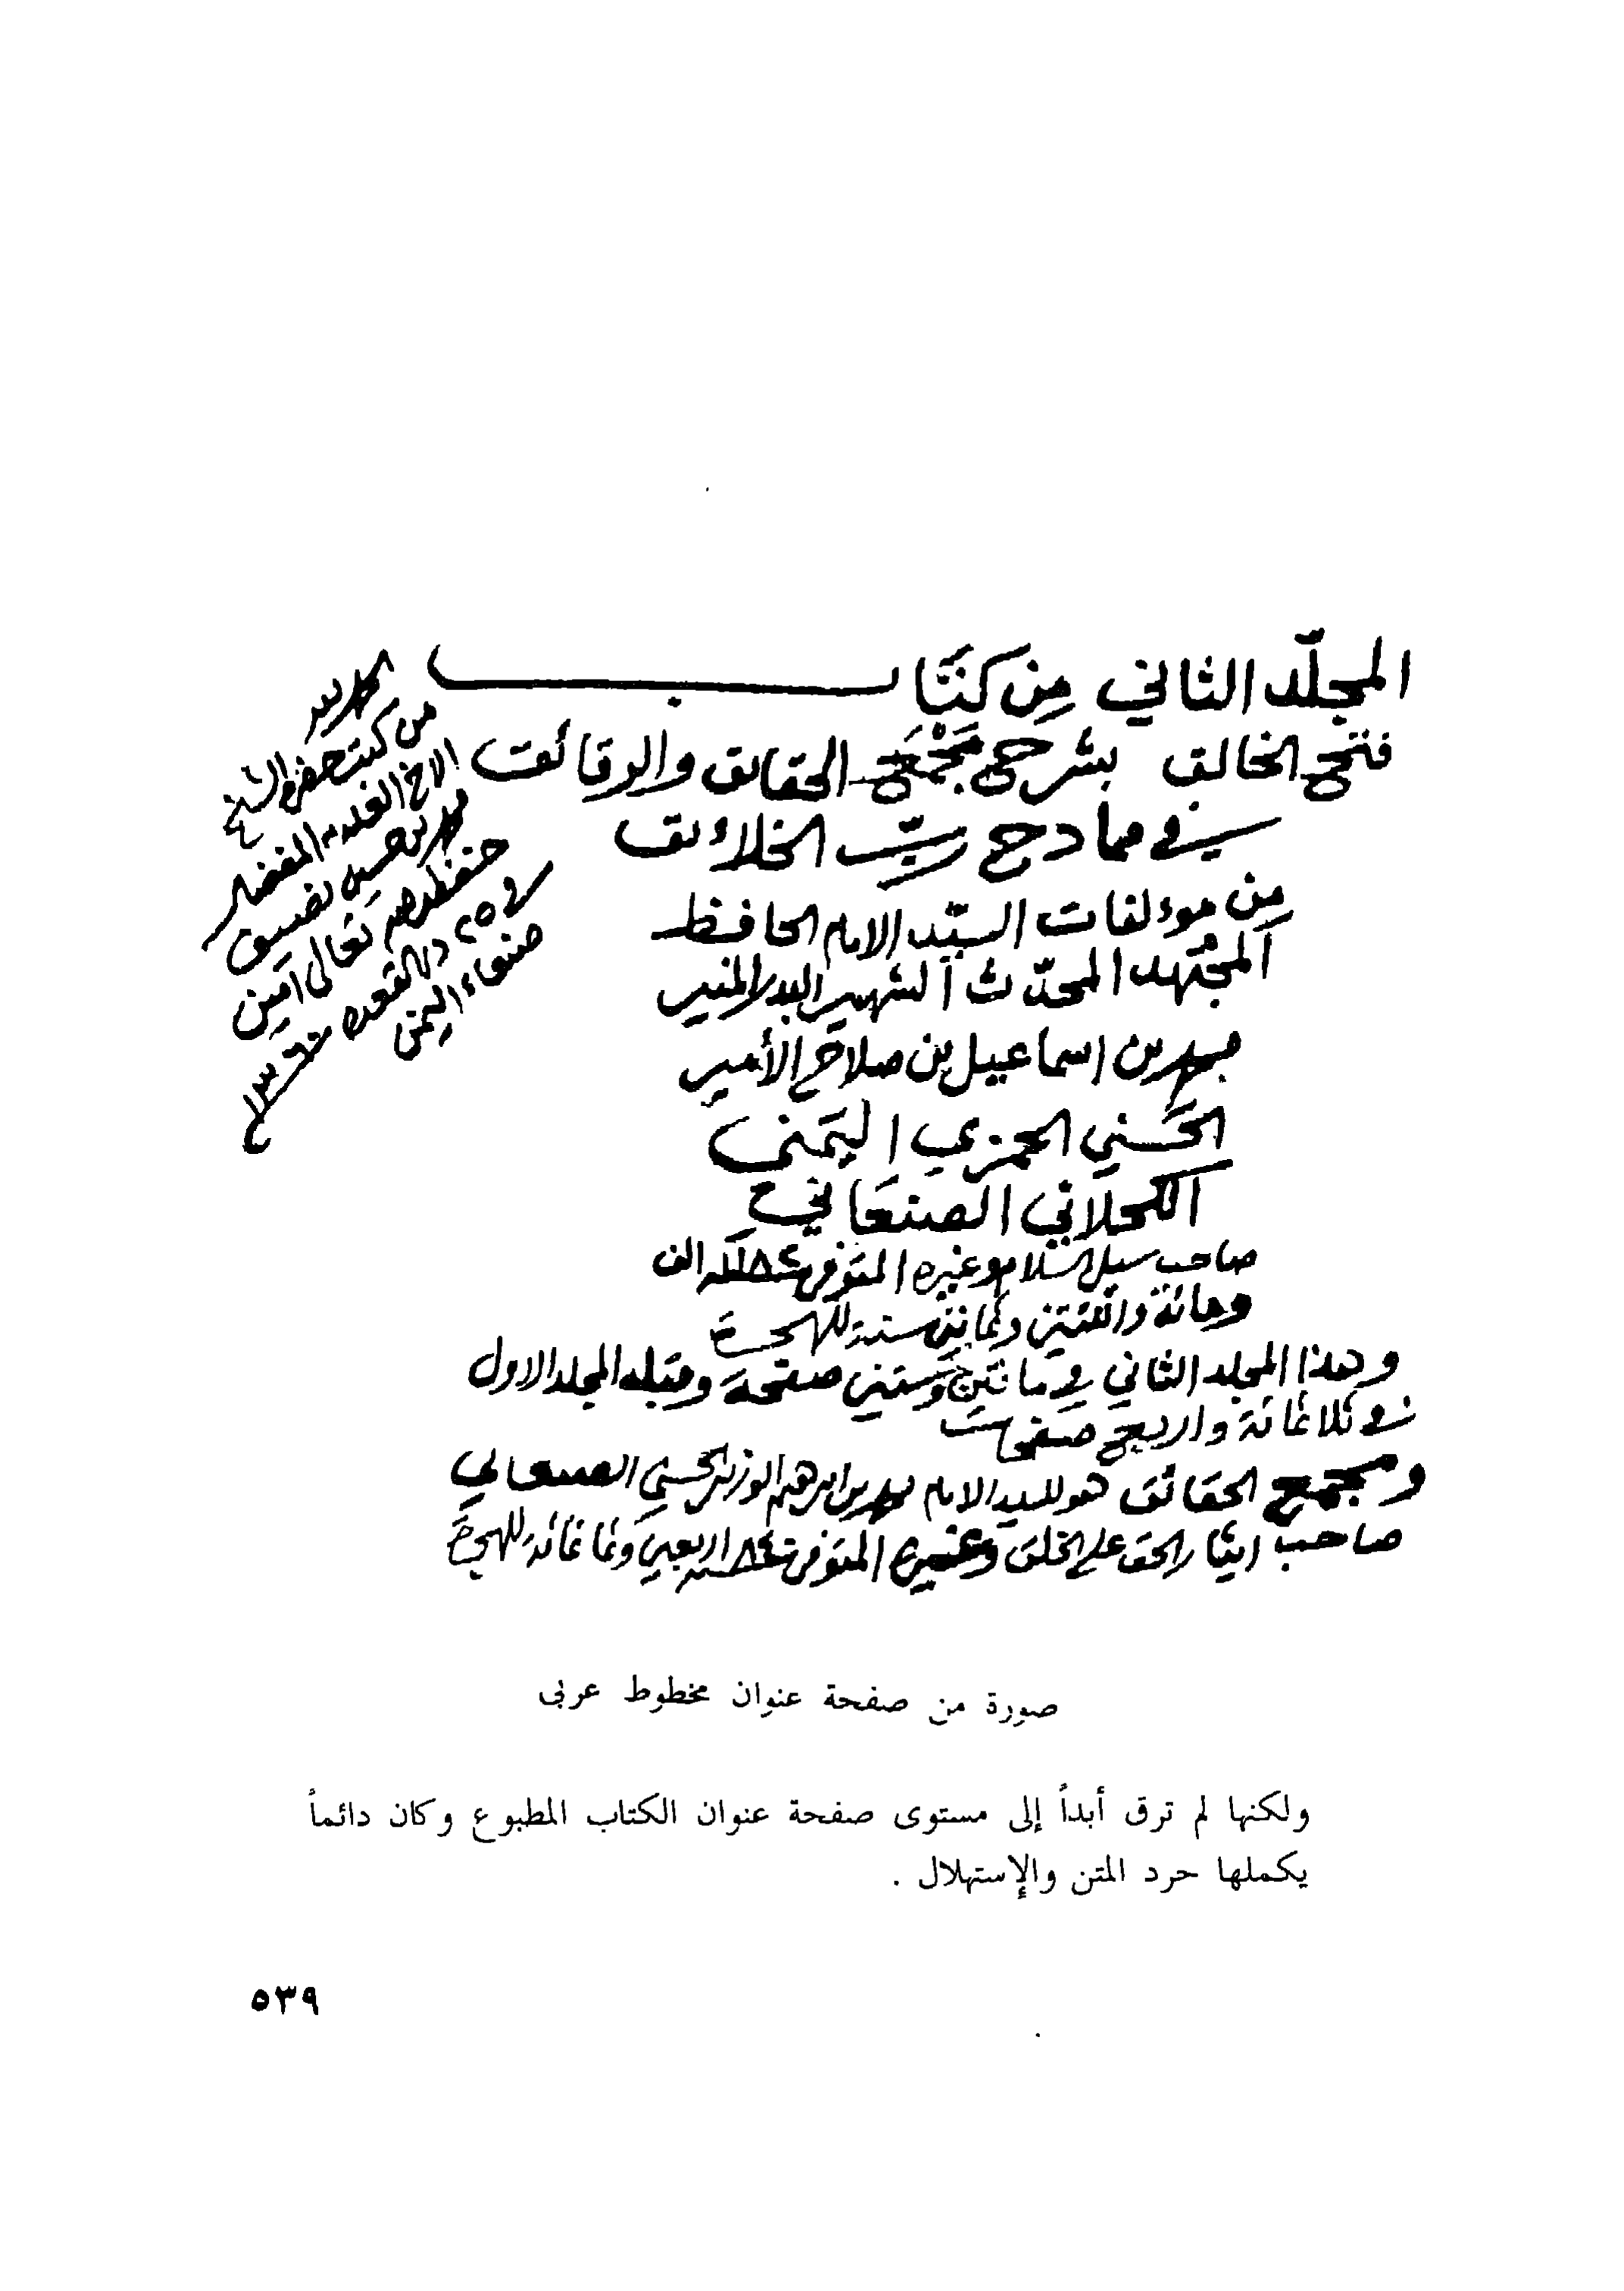 المجلّد الثاني مِن كتَاب
فتح الخالق بشرح مَجْمَع الحقايق والرقائق
في ممادح ربّ الخلائق
مِن موءلفات السيّد الامام الحافظ
المجتُهد المحدّث الشهير البدر المنير
محمد بن اسماعيل بن صلاح الأمير
الحَسَني الحمزي اليمَني
الكحلاني الصنعَاني
صاحب سبل السلام وغيره المتوفى سنة ١١٨٢ الف
ومائة واثنتين وثمانين سنة للهجرة
وهذا المجلد الثاني في مائتين وستين صفحة وقبله المجلد الاول
في ثلاثمائة واربع صفحات
ومجمع الحقائق هو للسيد الامام محمد بن ابرهيم الوزير الحسني الصنعاني
صاحب ايثار الحق على الخلق وغيره المتوفى سنة ٨٤٠ اربعين وثمانمائة للهجرة
الحمد لله
من كتب حضرة الشيخ
الاخ العلامة المفضال
محمد بن حسين نصيف
حفظهم تعالى آمين
في ٢٥ ذي القعدة
صنعاء اليمن
صورة من صفحة عنوان مخطوط عربى
ولكنها لم ترق أبداً إلى مستوى صفحة عنوان الكتاب المطبوع وكان دائماً
يكملها حرد المتن والإستهلال .
٥٣٩